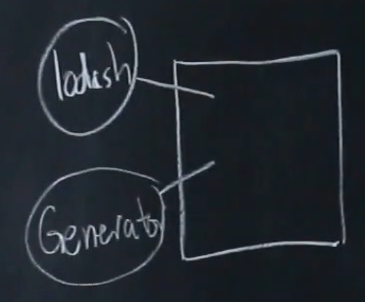 lodash
Generator